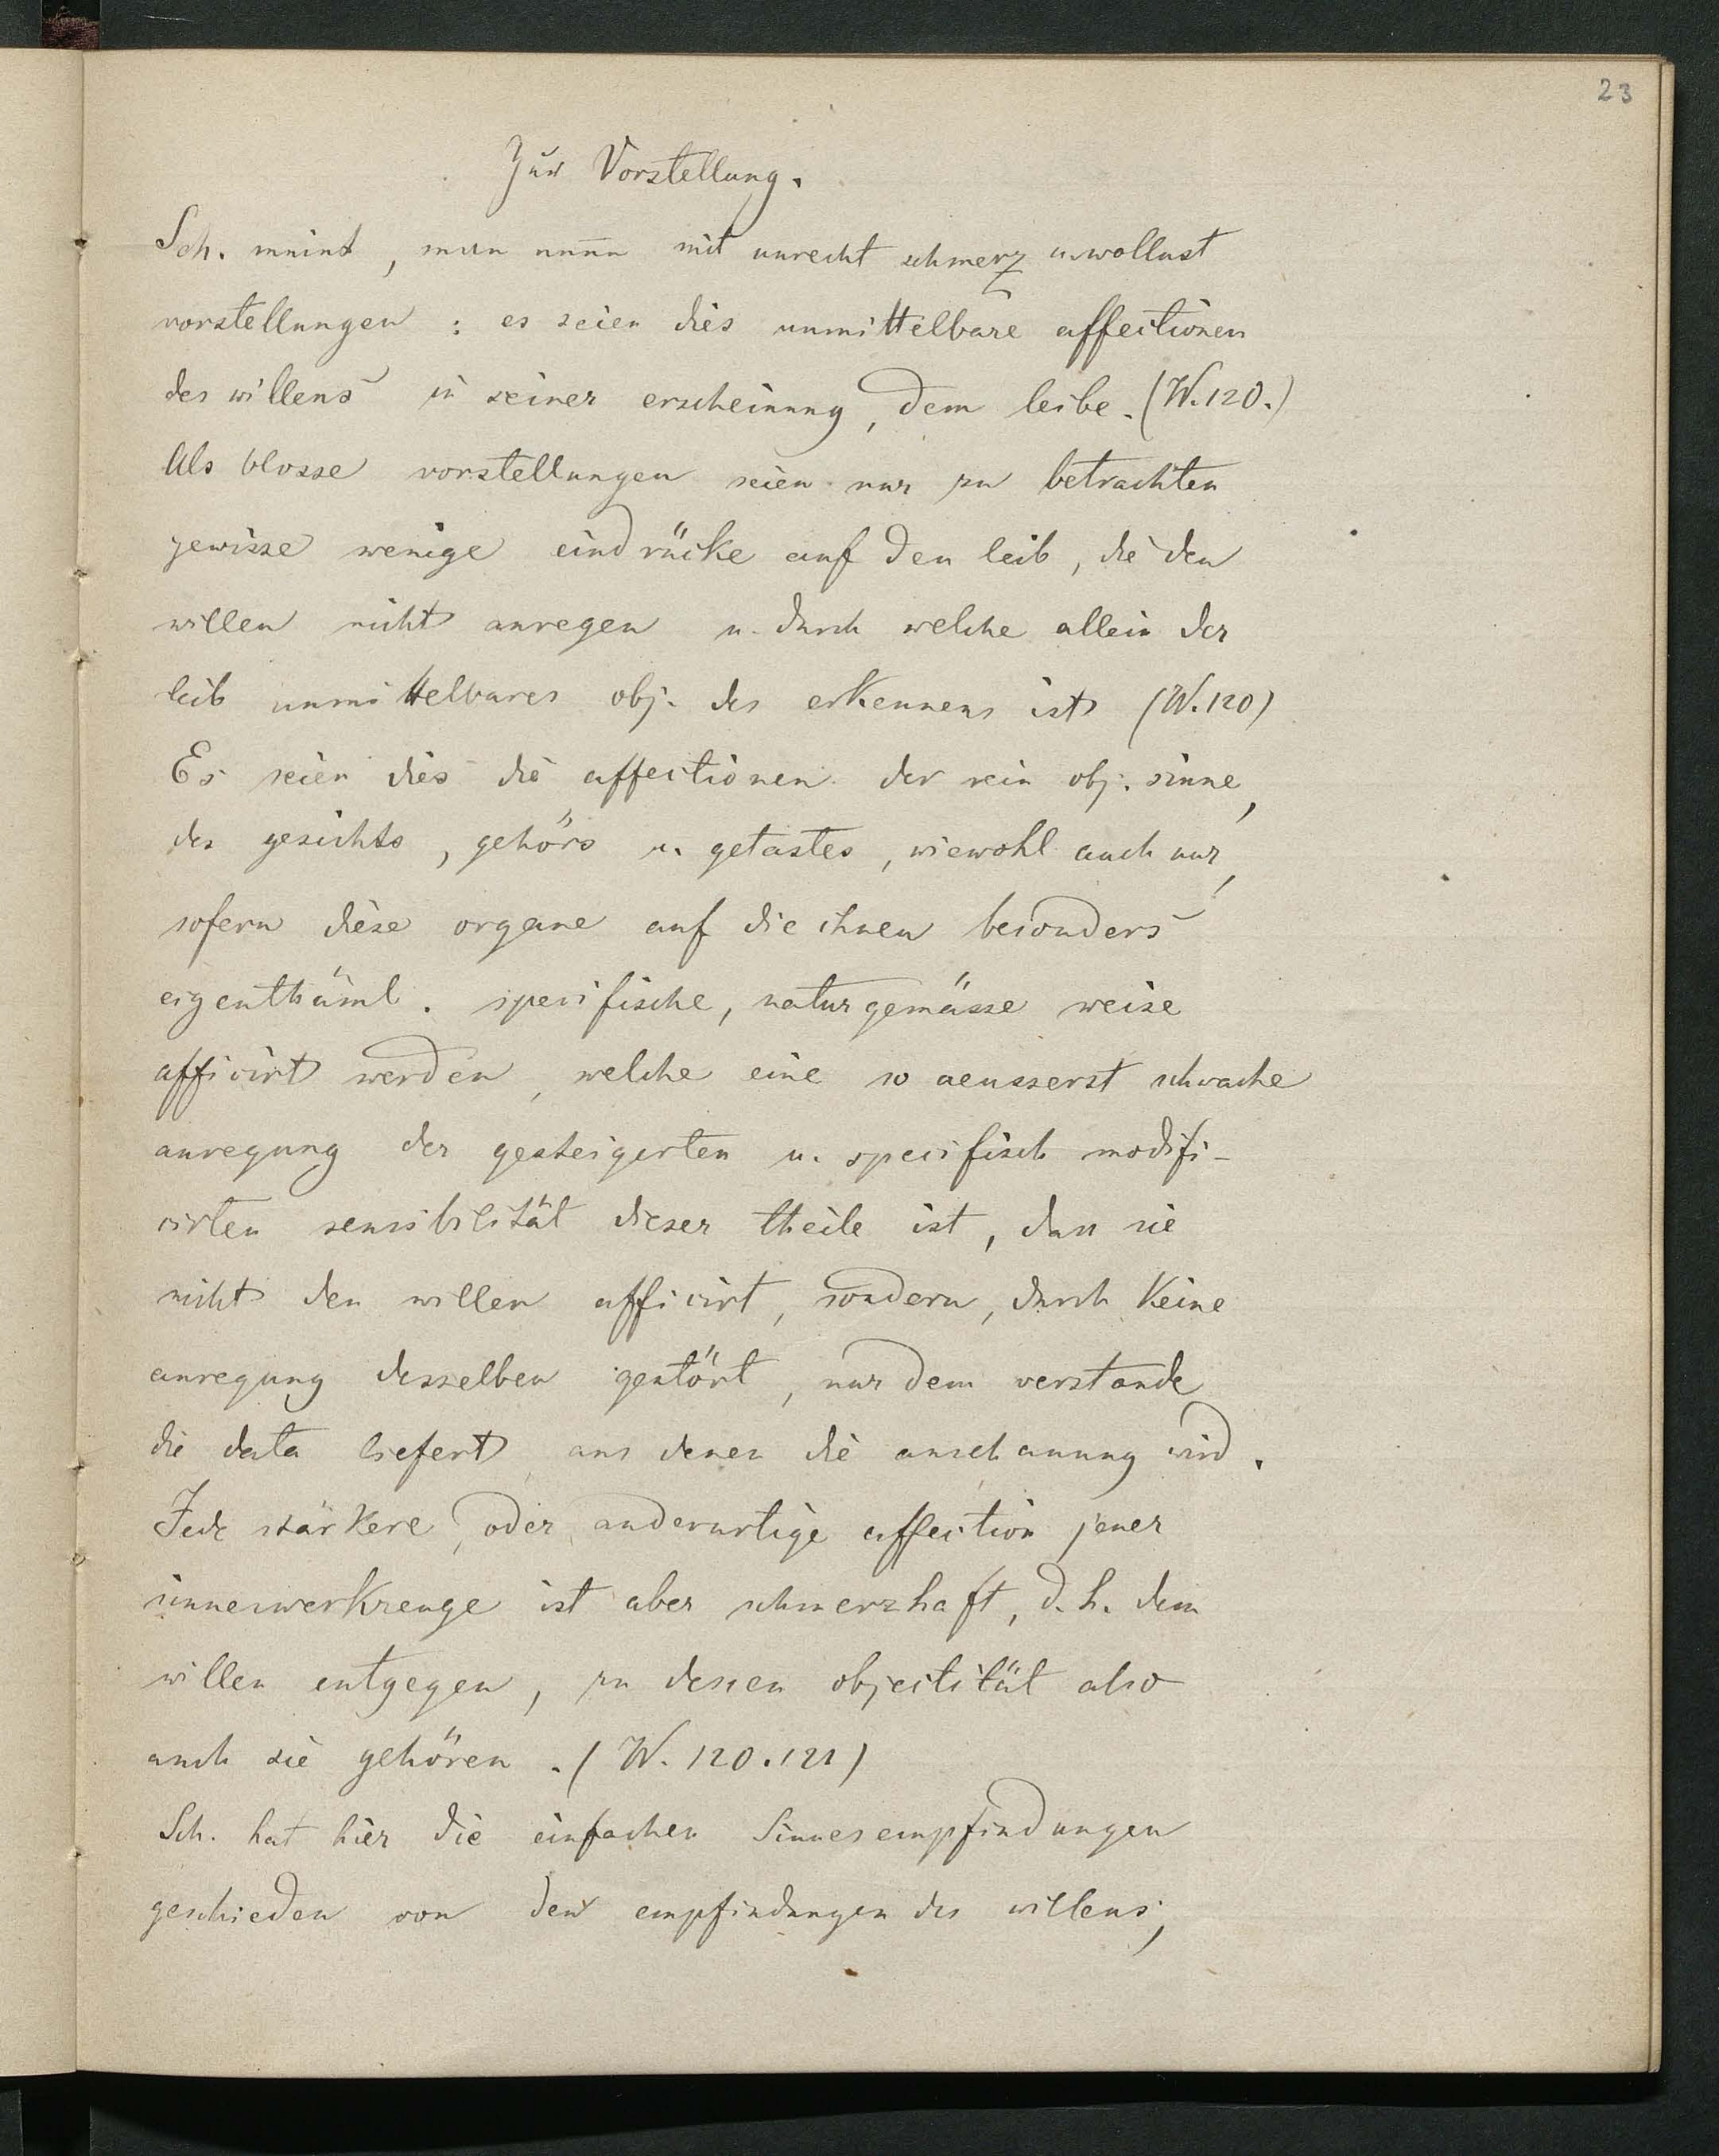 23
Zur Vorstellung.
Sch. meint, man nenne mit unrecht schmerz u. wollust
vorstellungen: es seien dies unmittelbare affectionen
des willens in seiner erscheinung, dem leibe. (W. 120.)
Als blosse vorstellungen seien nur zu betrachten
gewisse wenige eindrücke auf den leib, die den
willen nicht anregen u. durch welche allein der
leib unmittelbares obj. des erkennens ist (W. 120)
Es seien dies die affectionen der rein obj. sinne,
des gesichts, gehörs u. getastes, wiewohl auch nur,
sofern diese organe auf die ihnen besonders
eigenthüml. specifische, naturgemässe weise
afficirt werden, welche eine so aeusserst schwache
anregung der gesteigerten u. specifisch modifi-
cirten sensibilität dieser theile ist, dass sie
nicht den willen afficirt, sondern, durch keine
anregung desselben gestört, nur dem verstande
die data liefert, aus denen die anschauung wird.
Jede stärkere, oder anderartige affection jener
sinneswerkzeuge ist aber schmerzhaft, d. h. dem
willen entgegen, zu dessen objectität also
auch sie gehören. (W. 120. 121)
Sch. hat hier die einfachen Sinnesempfindungen
geschieden von den empfindungen des willens;